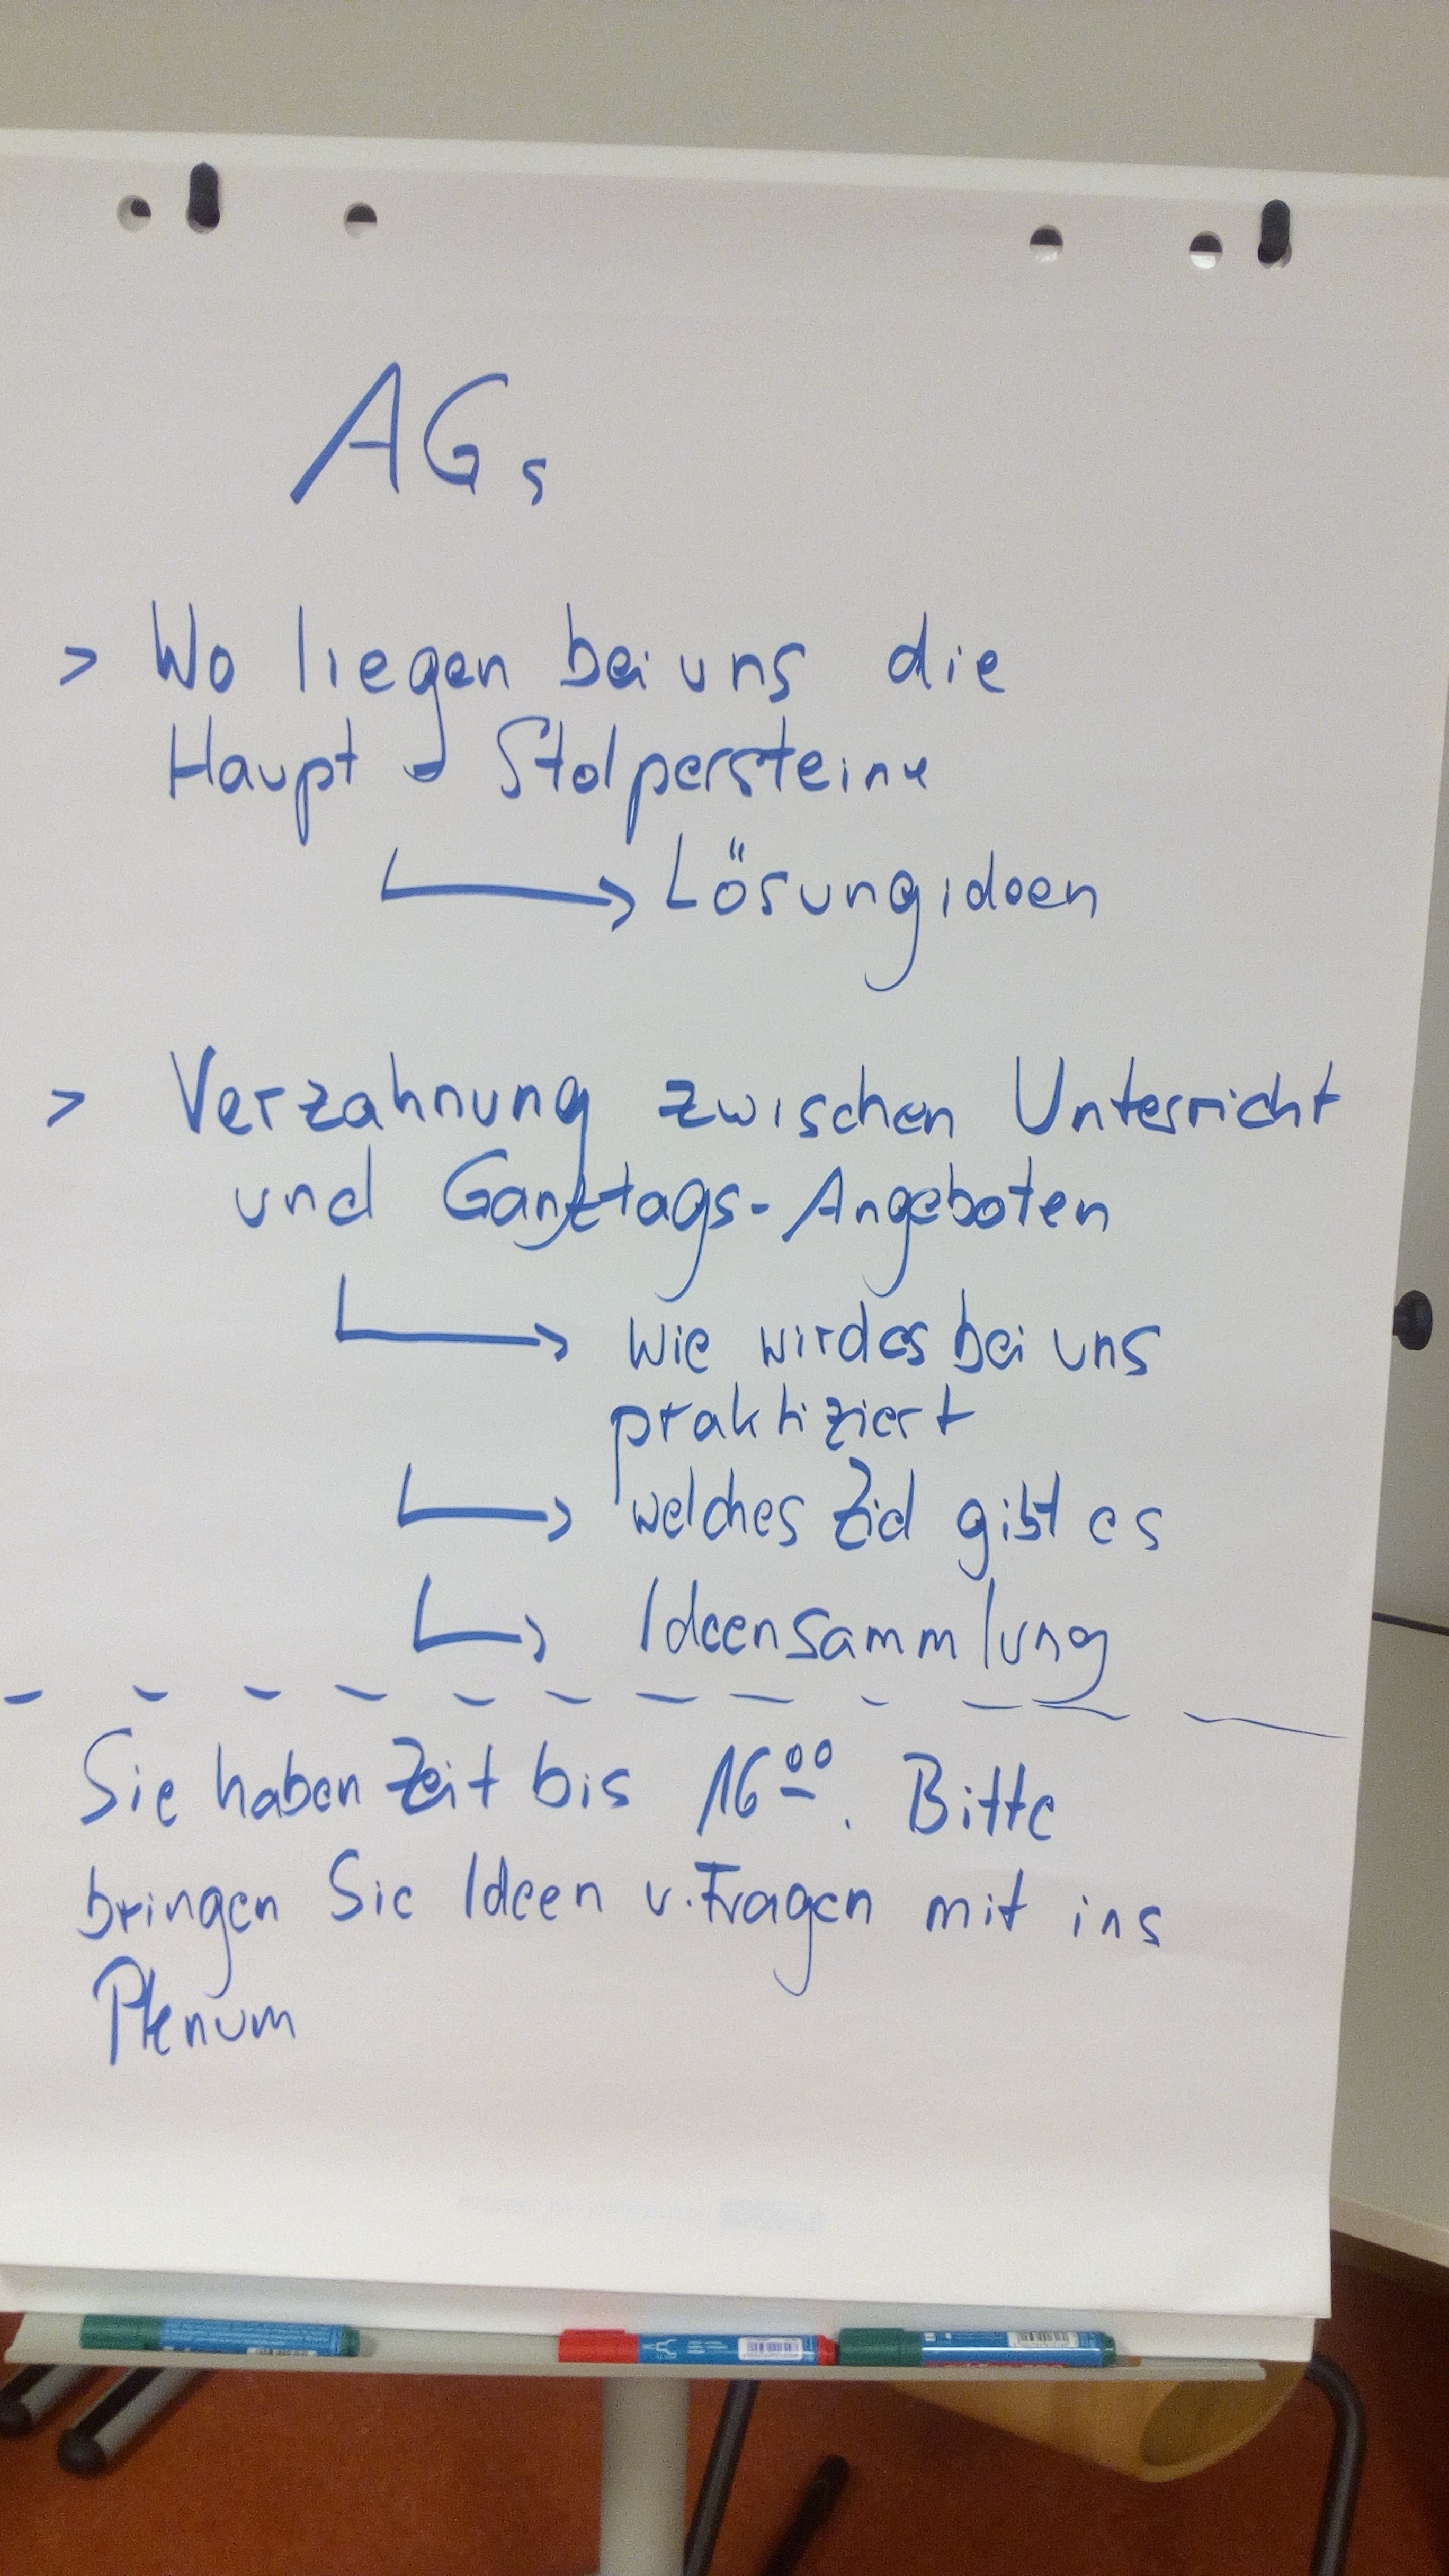 AGs
> Wo liegen bei uns die
Haupt - Stolpersteine
Lösungideen
> Verzahnung zwischen Unterricht
und Ganztags-Angeboten
wie wird es bei uns
praktiziert
welches Ziel gibt es
Ideensammlung
Sie haben Zeit bis 16⁰⁰. Bitte
bringen Sie Ideen u. Fragen mit ins
Plenum